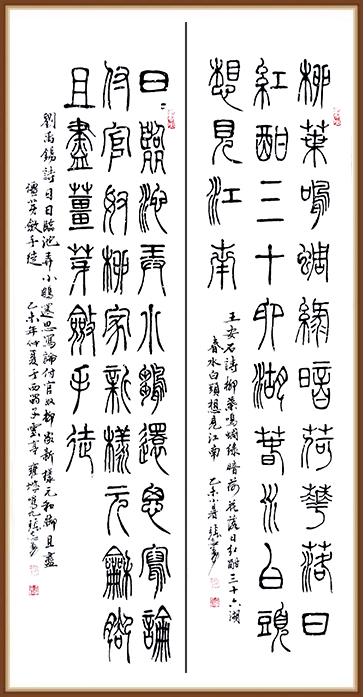 柳葉鳴蜩綠暗荷華落日
紅酣三十六湖春水白頭
想見江南
王安石詩柳葉鳴蜩綠暗荷花落日紅酣三十六湖
春水白頭想見江南 乙未小暑
日日臨池弄小雛還思寫論
付官奴柳家新樣元和腳
且盡薑芽斂手徒
劉禹錫詩日日臨池弄小雛還思寫論付官奴柳家新樣元和腳且盡
薑芽斂手徒 乙未年仲夏于西蜀子雲亭